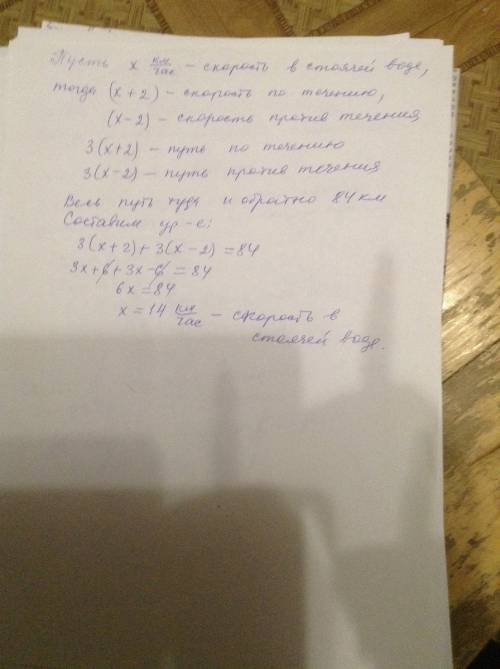 Пусть x км/час – скорость в стоячей воде,
тогда (x+2) – скорость по течению,
(x-2) – скорость против течения,
3(x+2) – путь по течению
3(x-2) – путь против течения
Весь путь туда и обратно 84 км
Составим ур-е:
3(x+2)+3(x-2)=84
3x+6+3x-6=84
6x=84
x=14 км/час – скорость в
стоячей воде.